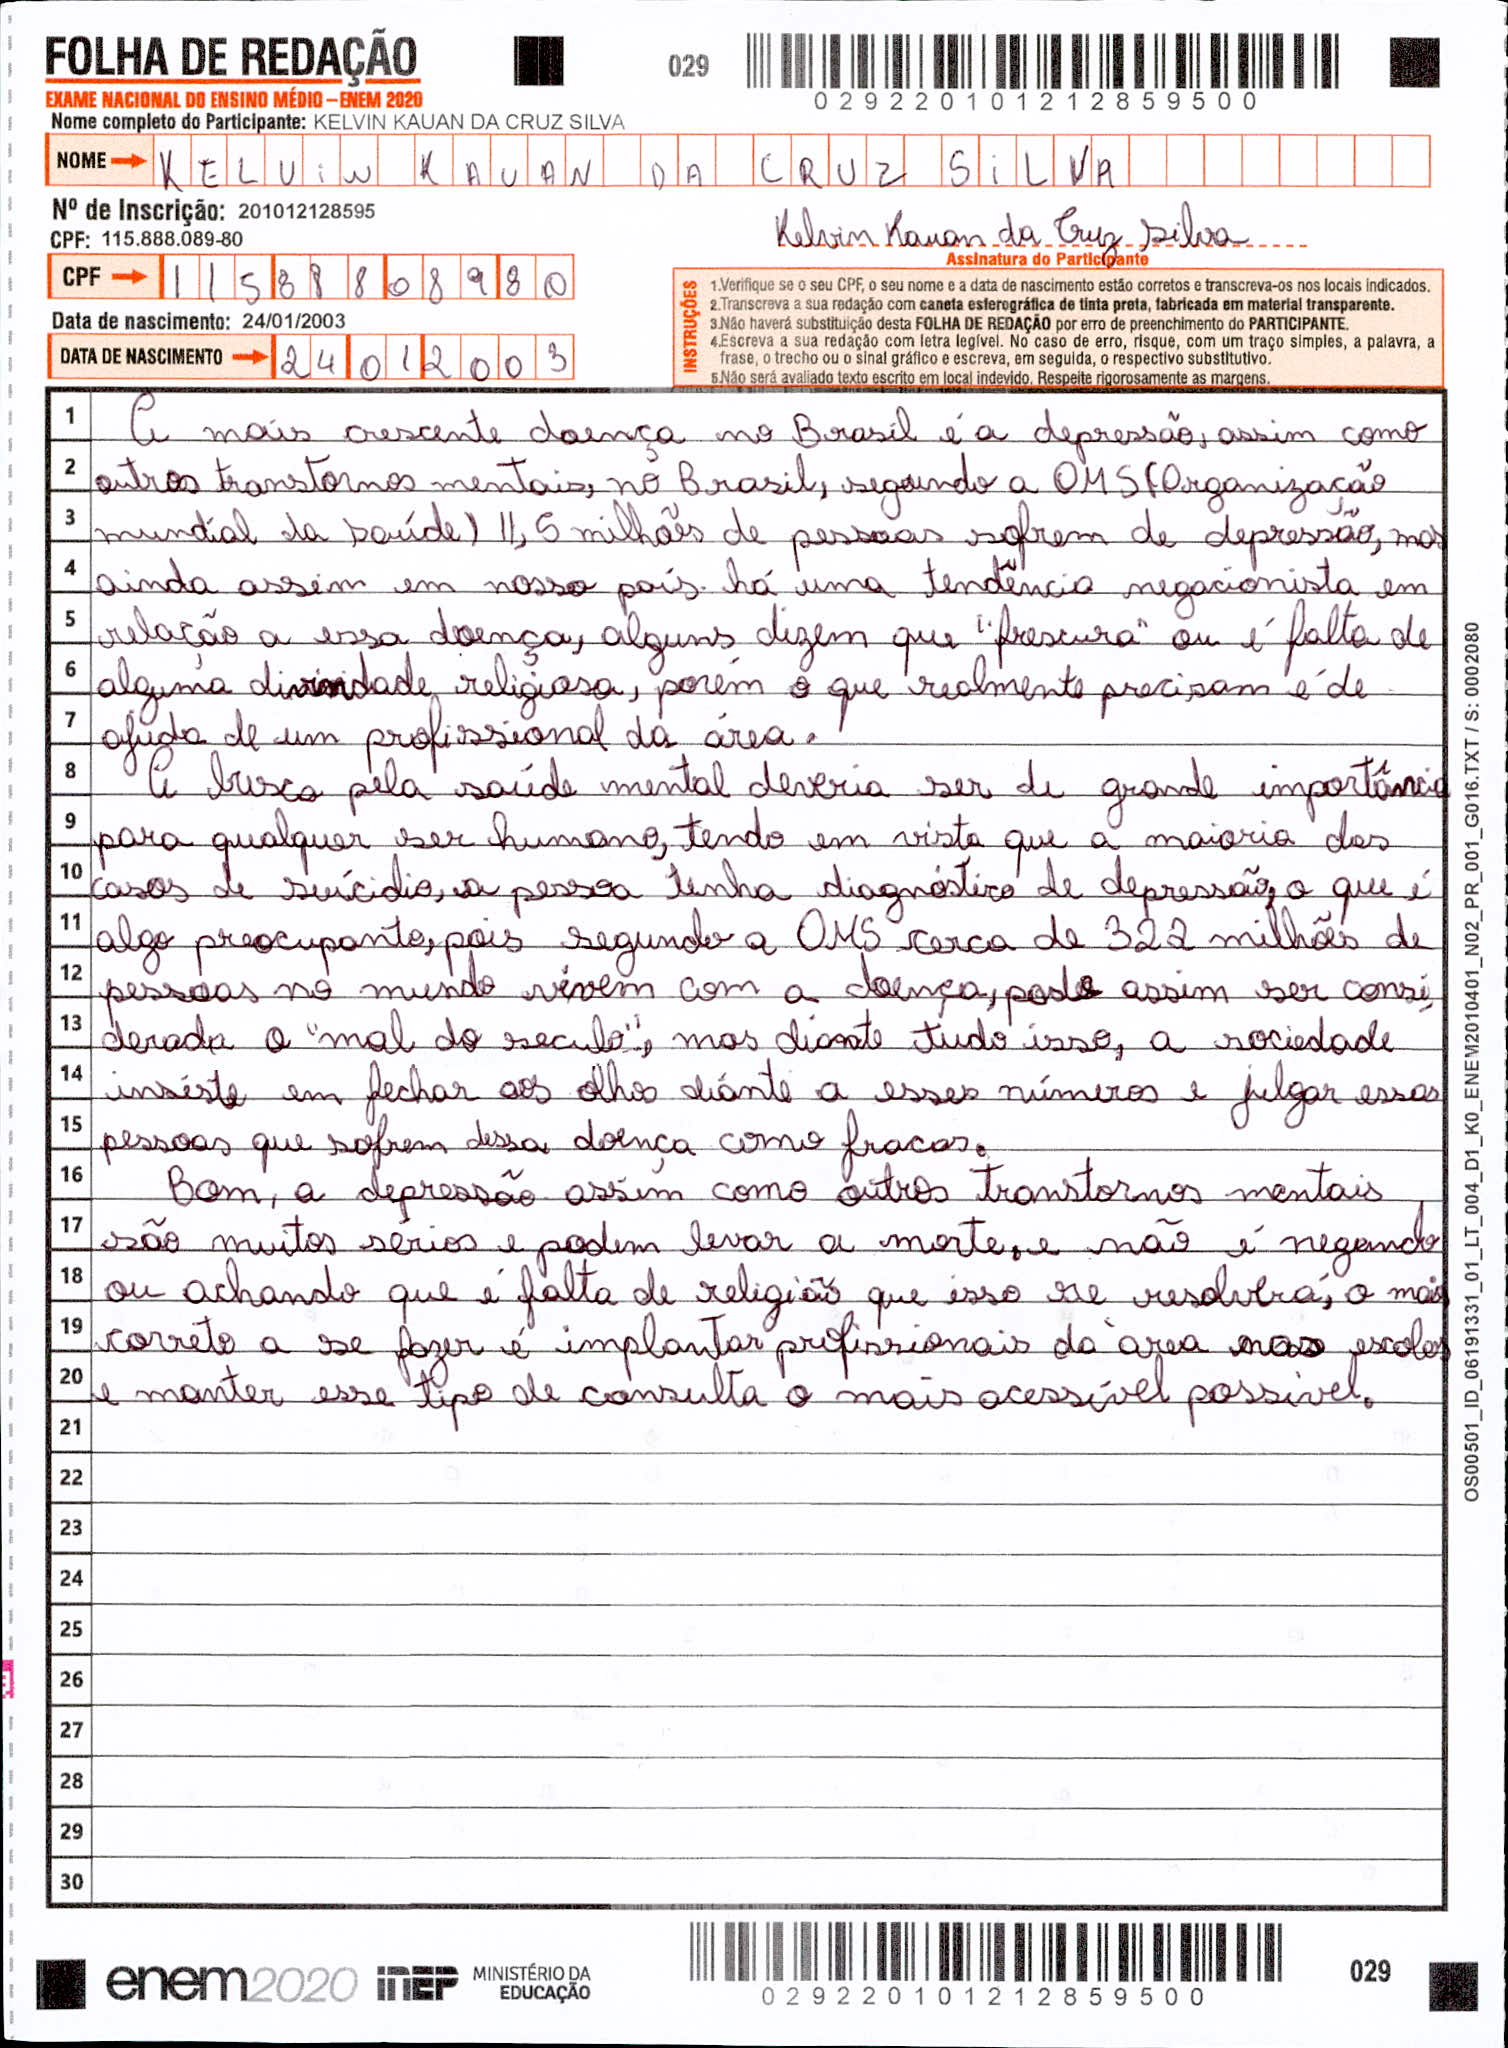 FOLHA DE REDAÇÃO
029
029220101212859500
EXAME NACIONAL DO ENSINO MÉDIO – ENEM 2020
Nome completo do Participante: KELVIN KAUAN DA CRUZ SILVA
NOME KELViN KAUAN DA CRUZ SiLVA
Nº de Inscrição: 201012128595
CPF: 115.888.089-80
Kelvin Kauan da Cruz Silva
Assinatura do Participante
CPF 11588808980
Data de nascimento: 24/01/2003
DATA DE NASCIMENTO 24012003
INSTRUÇÕES
1.Verifique se o seu CPF, o seu nome e a data de nascimento estão corretos e transcreva-os nos locais indicados.
2.Transcreva a sua redação com caneta esferográfica de tinta preta, fabricada em material transparente.
3.Não haverá substituição desta FOLHA DE REDAÇÃO por erro de preenchimento do PARTICIPANTE.
4.Escreva a sua redação com letra legível. No caso de erro, risque, com um traço simples, a palavra, a
frase, o trecho ou o sinal gráfico e escreva, em seguida, o respectivo substitutivo.
5.Não será avaliado texto escrito em local indevido. Respeite rigorosamente as margens.
1 A mais crescente doença no Brasil é a depressão, assim como
2 outros transtornos mentais, no Brasil, segundo a OMS (Organização
3 mundial da saúde) 11,5 milhões de pessoas sofrem de depressão, mas
4 ainda assim em nosso país há uma tendência negacionista em
5 relação a essa doença, alguns dizem que "frescura" ou é falta de
6 alguma divindade religiosa, porém o que realmente precisam é de
7 ajuda de um profissional da área.
8 A busca pela saúde mental deveria ser de grande importância
9 para qualquer ser humano, tendo em vista que a maioria dos
10 casos de suícidio, a pessoa tinha diagnóstico de depressão, o que é
11 algo preocupante, pois segundo a OMS cerca de 322 milhões de
12 pessoas no mundo vivem com a doença, pode assim ser consi
13 derada o "mal do seculo", mas diante tudo isso, a sociedade
14 insiste em fechar aos olhos diante a esses números e julgar essas
15 pessoas que sofrem dessa doença como fracas.
16 Bom, a depressão assim como outros transtornos mentais
17 são muitos sérios e podem levar a morte, e não é negando
18 ou achando que é falta de religião que isso se resolverá, o mais
19 correto a se fazer é implantar profissionais da àrea nas escolas
20 e manter esse tipo de consulta o mais acessível possivel.
21
22
23
24
25
26
27
28
29
30
OS00501_ID_06191331_01_LT_004_D1_K0_ENEM2010401_N02_PR_001_G016.TXT / S: 0002080
enem2020 inep MINISTÉRIO DA
EDUCAÇÃO
029220101212859500
029